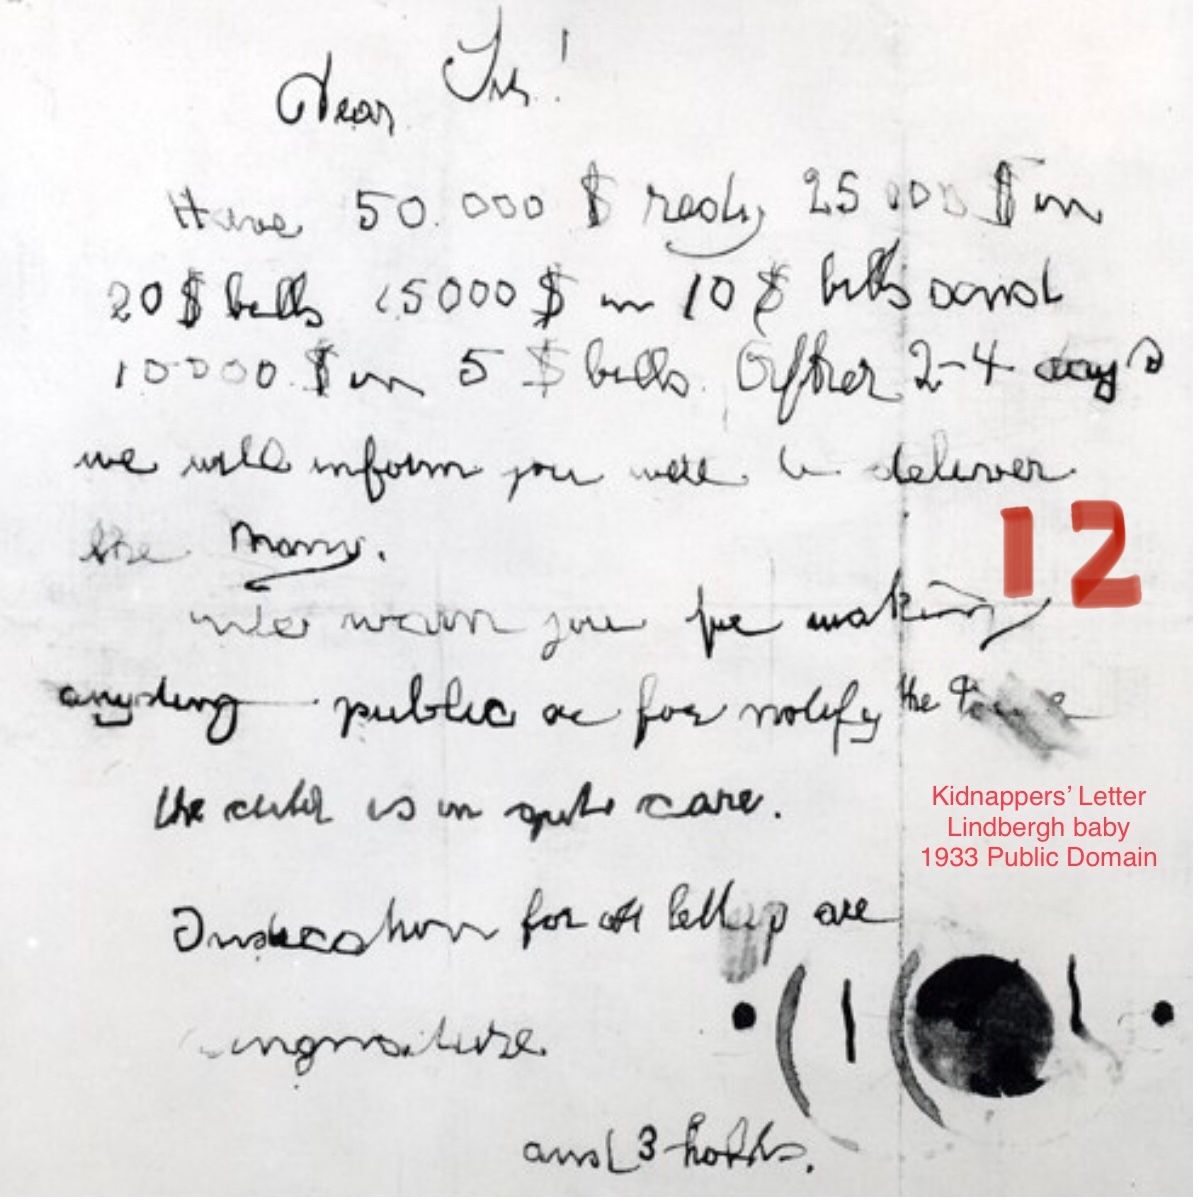 Dear Sir!
Have 50.000 $ redy 25 000 $ in
20 $ bills 15000 $ in 10 $ bills and
10000 $ in 5 $ bills. After 2-4 days
we will inform you were to deliver
the Mony.
We warn you for making
anyding public or for notify the Polise
the child is in gute care.
Indication for all letters are
singnature
and 3 holds.
12
Kidnappers’ Letter
Lindbergh baby
1933 Public Domain